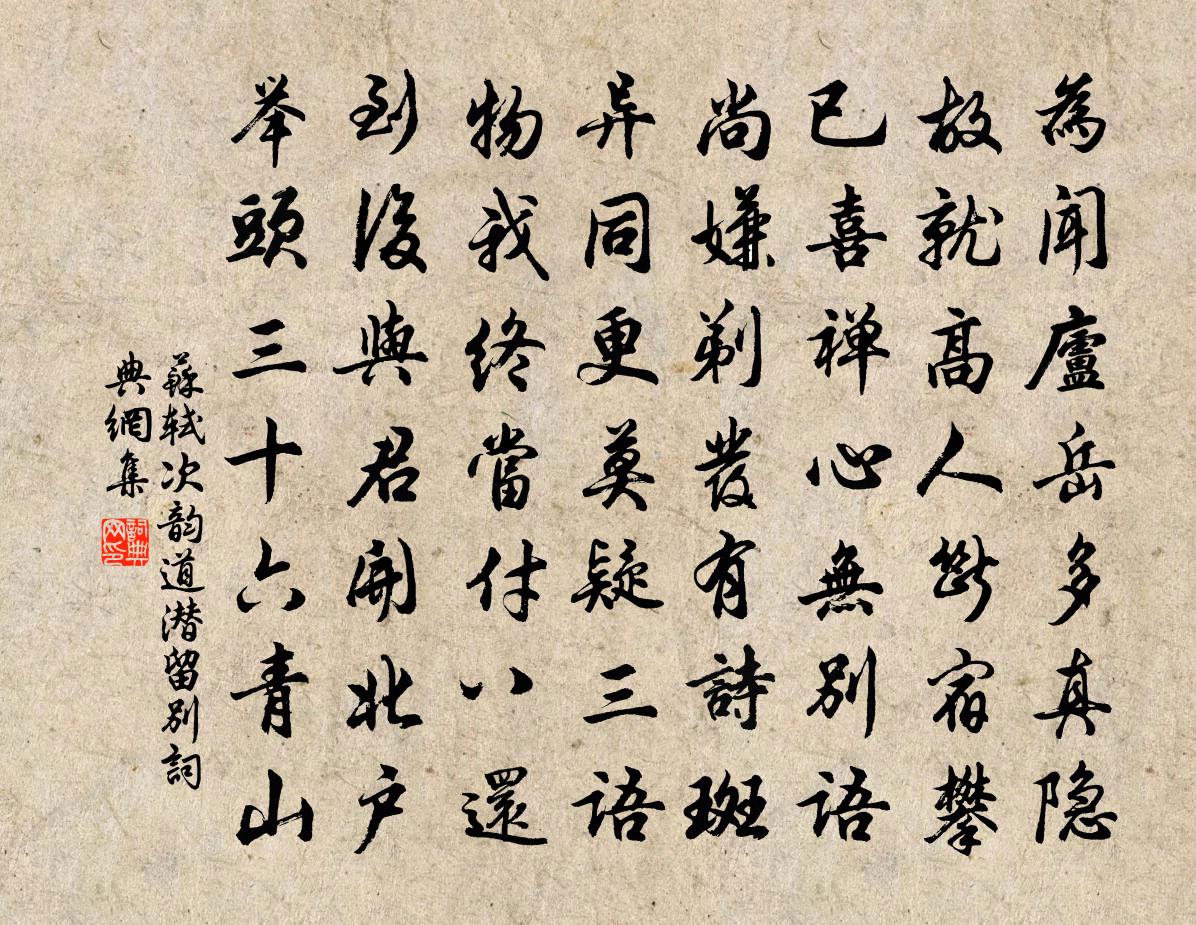 為闻廬岳多真隐
故就髙人断宿攀
已喜禅心無别語
尚嫌剃發有詩斑
异同更莫疑三語
物我终當付八還
到後與君開北户
举頭三十六青山
蘇轼次韵道潜留别詞
典網集
詞典網印